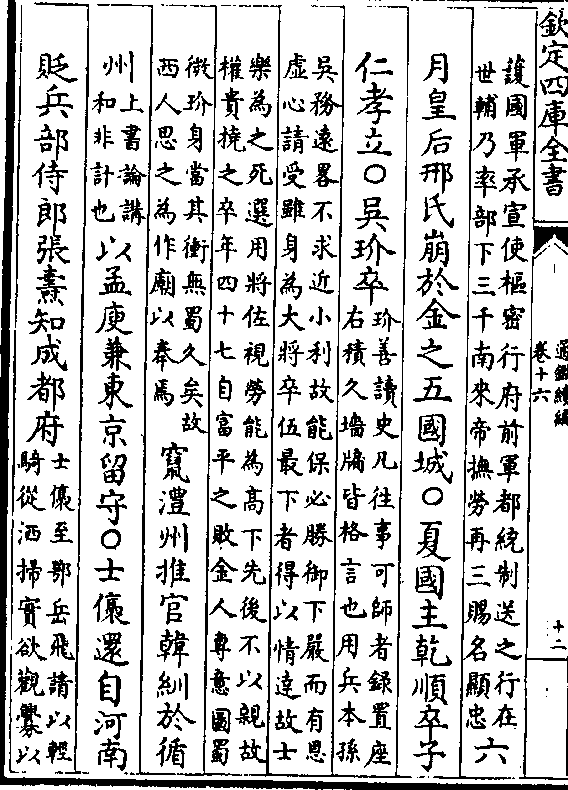 欽定四庫全書
通鑑續編
卷十六
十二
護國軍承宣使樞密行府前軍都統制送之行在
世輔乃率部下三千南來帝撫勞再三賜名顯忠
六
月皇后邢氏崩於金之五國城〇夏國主乾順卒子
仁孝立〇吳玠卒
玠善讀史凡往事可師者錄置座
右積久墻牖皆格言也用兵本孫
吳務遠畧不求近小利故能保必勝御下嚴而有恩
虛心請受雖身為大將卒伍最下者得以情達故士
樂為之死選用將佐視勞能為高下先後不以親故
權貴撓之卒年四十七自富平之敗金人專意圖蜀
微玠身當其衝無蜀久矣故
西人思之為作廟以奉焉
竄澧州推官韓紃於循
州
上書論講
和非計也
以孟庾兼東京留守〇士㒟還自河南
貶兵部侍郎張燾知成都府
士㒟至鄂岳飛請以輕
騎從洒掃實欲觀釁以